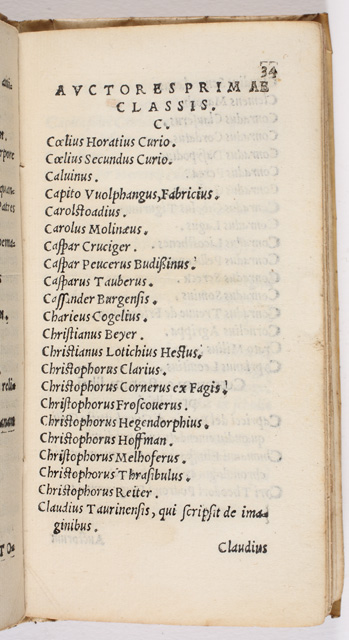 34
AVCTORES PRIMAE
CLASSIS.
C.
Cœlius Horatius Curio.
Cœlius Secundus Curio.
Caluinus.
Capito Vuolphangus, Fabricius.
Carolstoadius.
Carolus Molinæus.
Caspar Cruciger.
Caspar Peucerus Budißinus.
Casparus Tauberus.
Cassander Burgensis.
Charieus Cogelius.
Christianus Beyer.
Christianus Lotichius Hestus.
Christophorus Clarius.
Christophorus Cornerus ex Fagis.
Christophorus Froscouerus.
Christophorus Hegendorphius.
Christophorus Hoffman.
Christophorus Melhoferus.
Christophorus Thrasibulus.
Christophorus Reiter.
Claudius Taurinensis, qui scripsit de ima-
ginibus.
Claudius